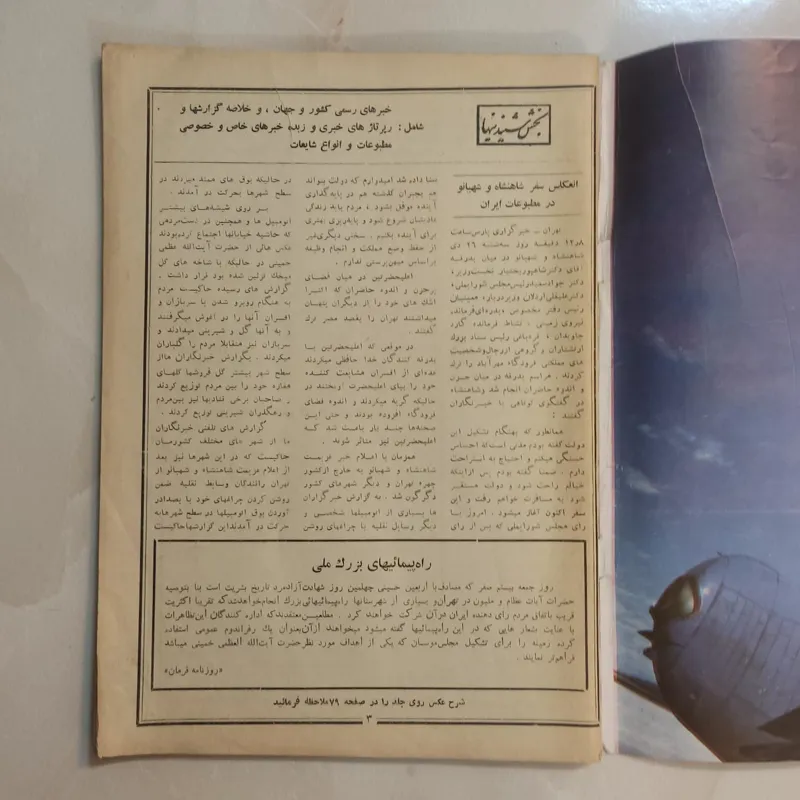 بخش شنیدنیها
خبرهای رسمی کشور و جهان ، و خلاصه گزارشها و
شامل : رپرتاژ های خبری و زبده خبرهای خاص و خصوصی
مطبوعات و انواع شایعات
انعکاس سفر شاهنشاه و شهبانو
در مطبوعات ایران
تهران ـ خبرگزاری پارس ساعت
۱۲٫۸ دقیقه روز سه‌شنبه ۲۶ دی
شاهنشاه و شهبانو در میان بدرقه
آقای دکتر شاهپور بختیار نخست‌وزیر،
دکتر جواد سعید رئیس مجلس شورایملی،
دکتر علیقلی اردلان وزیر دربار، معینیان
رئیس دفتر مخصوص، بدره‌ای فرمانده
نیروی زمینی، نشاط فرمانده گارد
جاویدان، قره‌باغی رئیس ستاد بزرگ
ارتشتاران و گروهی از رجال و شخصیت
های مملکتی فرودگاه مهرآباد را ترک
کردند. مراسم بدرقه در میان حزن
و اندوه حاضران انجام شد و شاهنشاه
در گفتگوی کوتاهی با خبرنگاران
گفتند :
همانطور که بهنگام تشکیل این
دولت گفته بودم مدتی است که احساس
خستگی میکنم و احتیاج به استراحت
دارم . ضمنا گفته بودم پس از اینکه
خیالم راحت شود و دولت مستقر
شود به مسافرت خواهم رفت و این
سفر اکنون آغاز میشود . امروز با
رای مجلس شورایملی که پس از رای
سنا داده شد امیدوارم که دولت بتواند
هم بجبران گذشته هم در پایه‌گذاری
آینده موفق بشود
برای آینده بکنیم . سخنی دیگری غیر
از حفظ وضع مملکت و انجام وظیفه
براساس میهن‌پرستی ندارم .
اعلیحضرتین در میان فضای
پرحزن و اندوه حاضران که اکثرا
اشک های خود را از دیگران پنهان
میداشتند تهران را بقصد مصر ترک
گفتند .
در موقعی که اعلیحضرتین با
بدرقه کنندگان خدا حافظی میکردند
عده‌ای از افسران مشایعت کننده
خود را بپای اعلیحضرت انداختند در
حالیکه گریه میکردند و اندوه فضای
فرودگاه افزوده بودند و حتی این
صحنه‌ها چند بار باعث شد که
اعلیحضرتین نیز متاثر شوند .
همزمان با اعلام خبر عزیمت
شاهنشاه و شهبانو به خارج از کشور
چهره تهران و دیگر شهرهای کشور
دگرگون شد . به گزارش خبرگزاران
ها بسیاری از اتومبیلها شخصی و
دیگر وسایل نقلیه با چراغهای روشن
در حالیکه بوق های ممتد میزدند در
سطح شهرها بحرکت در آمدند .
بر روی شیشه‌های بیشتر
اتومبیل ها و همچنین در دست مردمی
که حاشیه خیابانها اجتماع کرده بودند
عکس هائی از حضرت آیت‌الله عظمی
خمینی در حالیکه با شاخه های گل
میخک تزئین شده بود قرار داشت .
گزارش های رسیده حاکیست مردم
به هنگام روبرو شدن با سربازان و
افسران آنها را در آغوش میگرفتند
و به آنها گل و شیرینی میدادند و
سربازان نیز متقابلا مردم را گلباران
میکردند . بگزارش خبرنگاران ما از
سطح شهر بیشتر گل فروشها گلهای
مغازه خود را بین مردم توزیع کردند
و صاحبان برخی قنادیها نیز بین مردم
و رهگذران شیرینی توزیع کردند .
گزارش های تلفنی خبرنگاران
ما از شهر های مختلف کشورمان
حاکیست که در این شهرها نیز بعد
از اعلام عزیمت شاهنشاه و شهبانو از
تهران رانندگان وسایط نقلیه ضمن
روشن کردن چراغهای خود با بصدا در
آوردن بوق اتومبیلها در سطح شهرها به
حرکت در آمدند این گزارشها حاکیست
راه‌پیمائیهای بزرك ملی
روز جمعه بیستم صفر که مصادف با اربعین حسینی چهلمین روز شهادت آزاد مرد تاریخ بشریت است بنا بتوصیه
حضرات آیات عظام و ملیون در تهران و بسیاری از شهرستانها راه‌پیمائیهائی بزرك انجام خواهد شد که تقریبا اکثریت
قریب باتفاق مردم رای دهنده ایران در آن شرکت خواهند کرد . مطلعین معتقدند که اداره کنندگان این تظاهرات
با عنایت شعار هایی که در این راه‌پیمائیها گفته میشود میخواهند از آن بعنوان یك رفراندوم عمومی استفاده
کرده زمینه را برای تشکیل مجلس موسسان که یکی از اهداف مورد نظر حضرت آیت‌الله العظمی خمینی میباشد
فراهم‌تر نمایند .
«روزنامه فرمان»
شرح عکس روی جلد را در صفحه ۷۹ ملاحظه فرمائید
۳